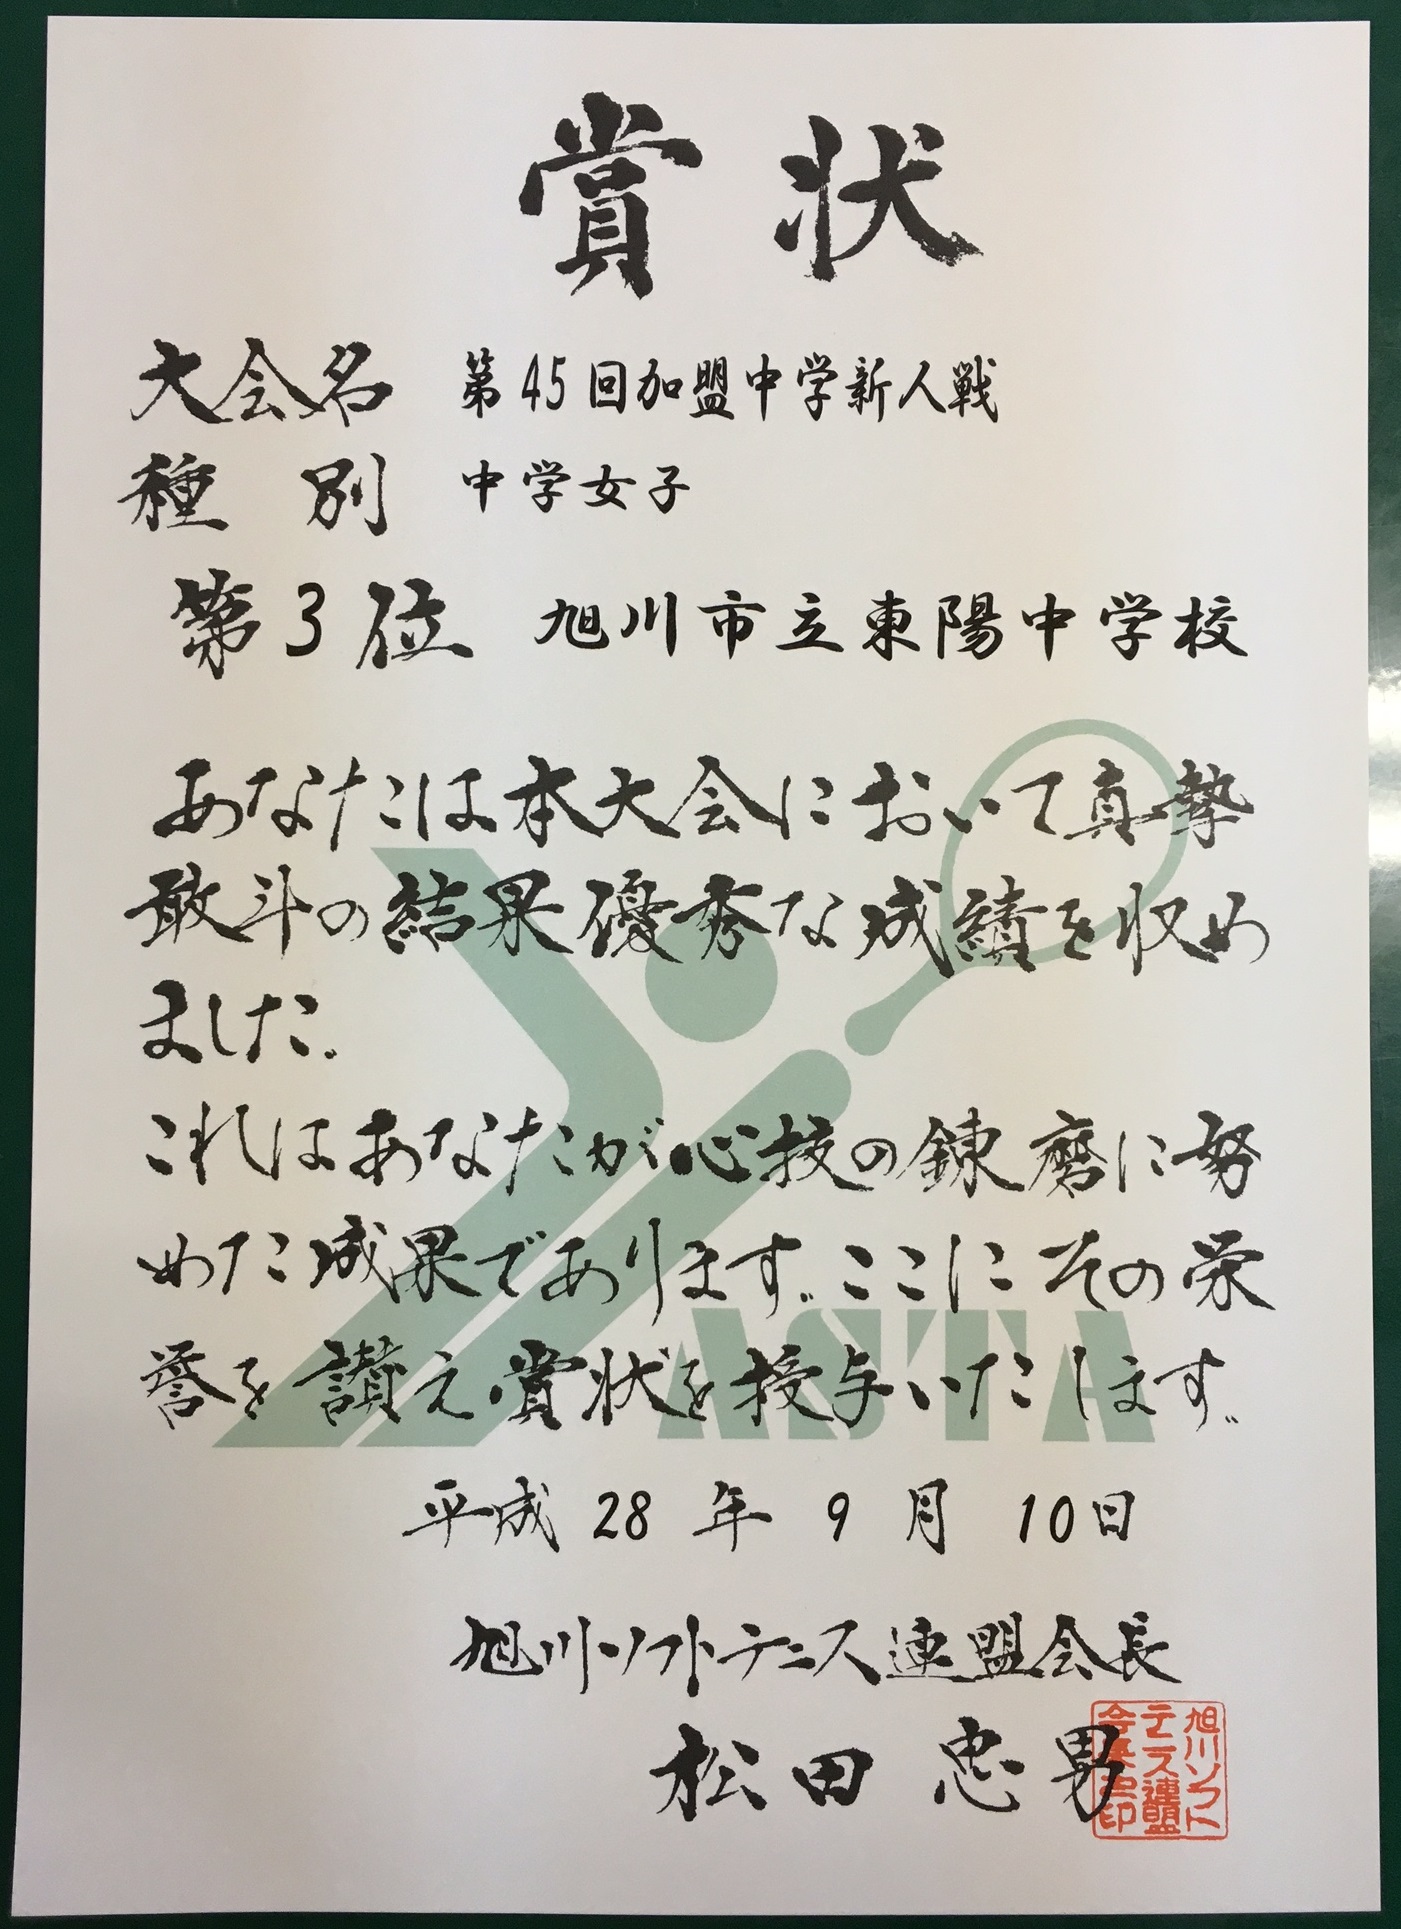 賞状
大会名 第45回加盟中学新人戦
種別 中学女子
第3位 旭川市立東陽中学校
あなたは本大会において真摯
敢斗の結果優秀な成績を収め
ました。
これはあなたが心技の錬磨に努
めた成果であります。ここにその栄
誉を讃え賞状を授与いたします。
ASTA
平成28年9月10日
旭川ソフトテニス連盟会長
松田忠男
旭川ソフト
テニス連盟
会長之印